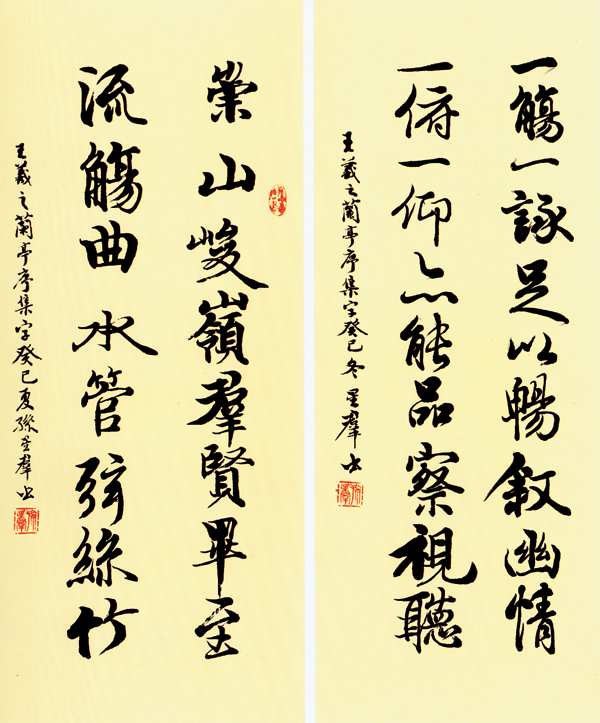 一觴一詠足以暢叙幽情
一俯一仰亦能品察視聽
王羲之蘭亭序集字癸巳冬星羣书
崇山峻嶺羣賢畢至
流觴曲水管弦絲竹
王羲之蘭亭序集字癸巳夏孫星羣书